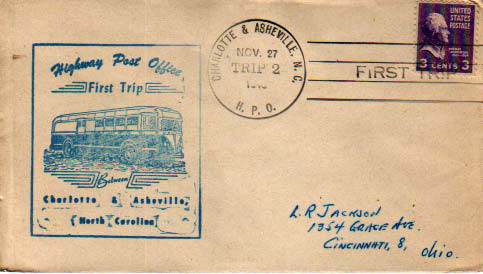 Highway Post Office
First Trip
Between
Charlotte & Asheville
North Carolina
CHARLOTTE & ASHEVILLE, N.C.
NOV. 27
TRIP 2
H. P. O.
FIRST TRIP
UNITED
STATES
POSTAGE
3 CENTS 3
L. R JACKSON
1354 GRACE AVE.
CINCINNATI, 8,
Ohio.